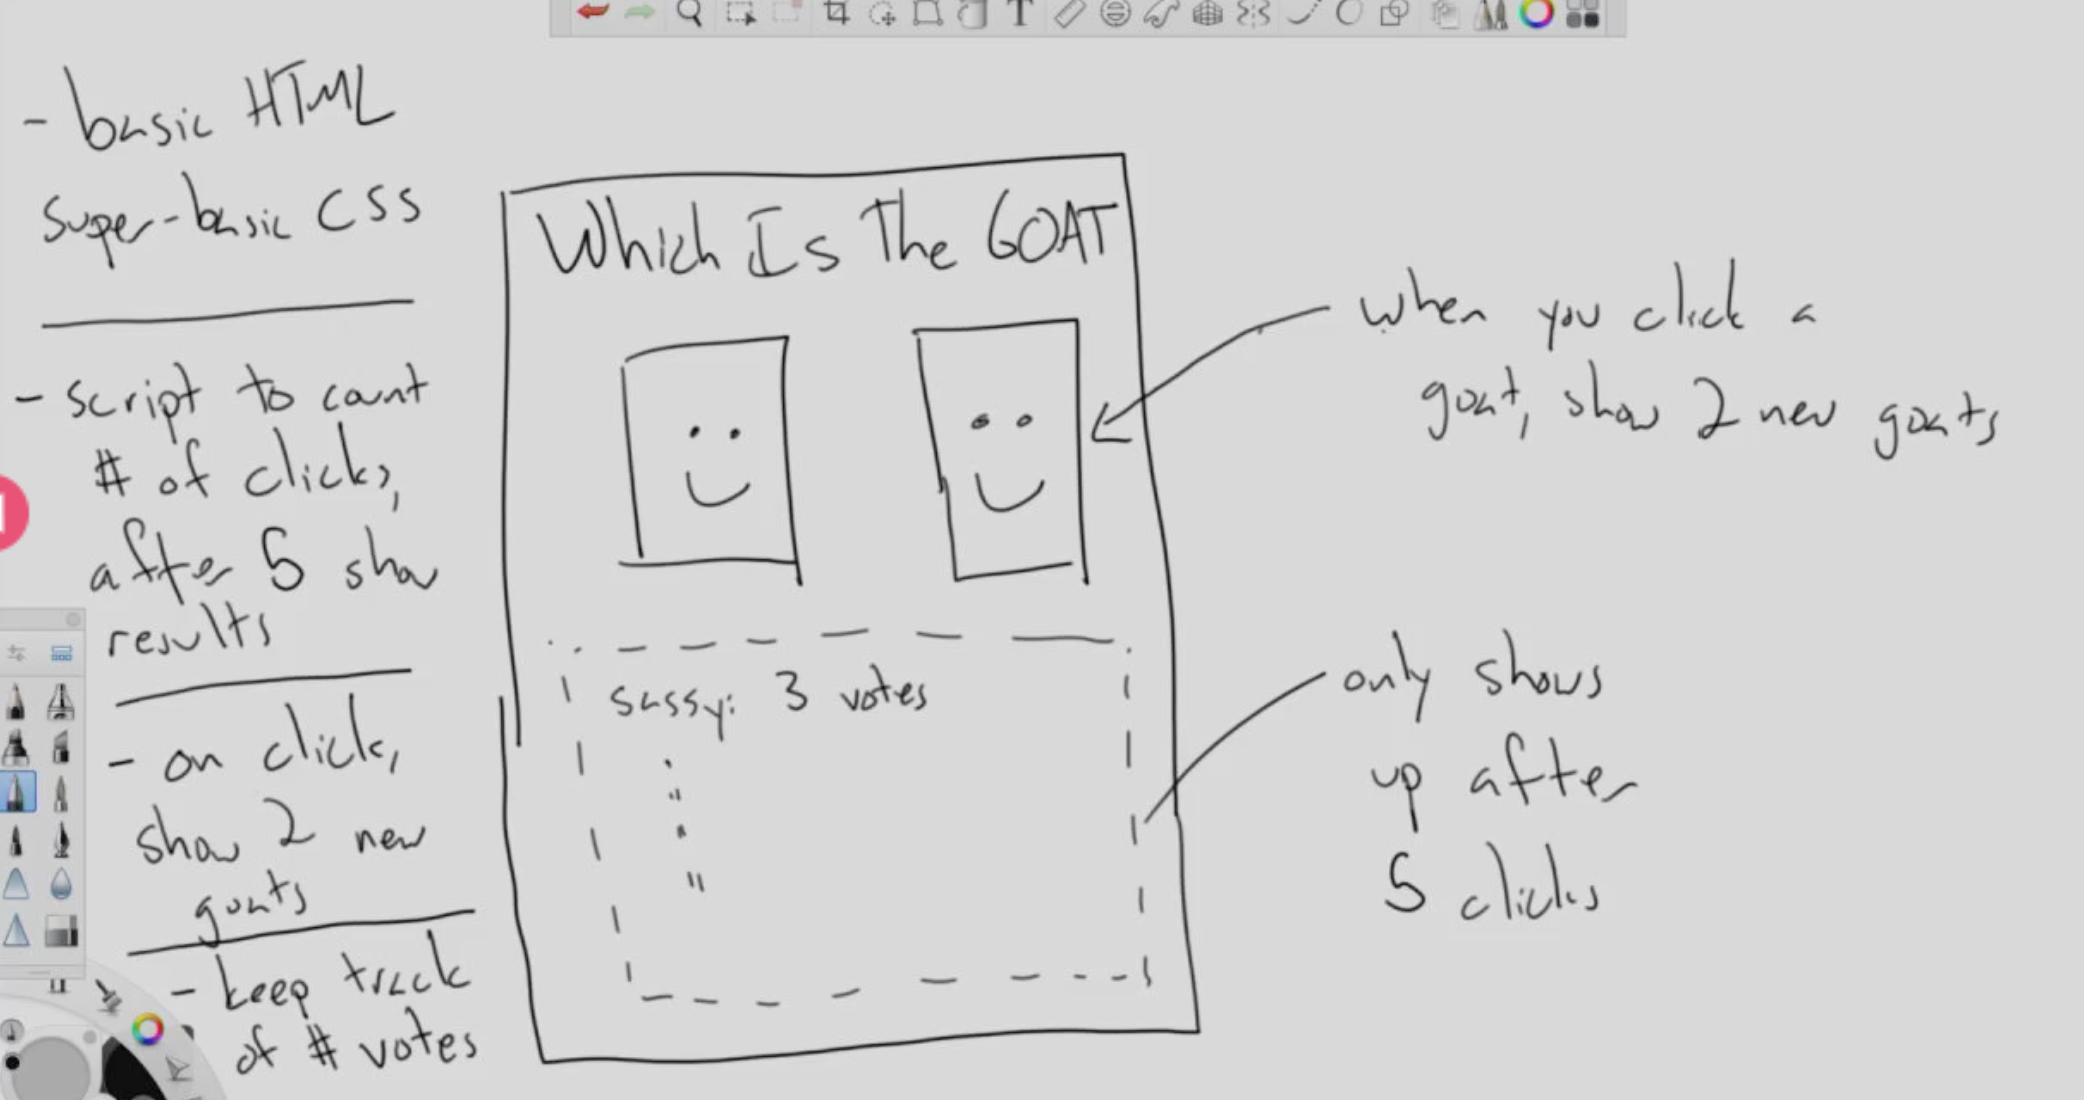 - basic HTML
super-basic CSS
- script to count
# of clicks,
after 5 show
results
- on click,
show 2 new
goats
- keep track
of # votes
Which Is The GOAT
sassy: 3 votes
when you click a
goat, show 2 new goats
only shows
up after
5 clicks